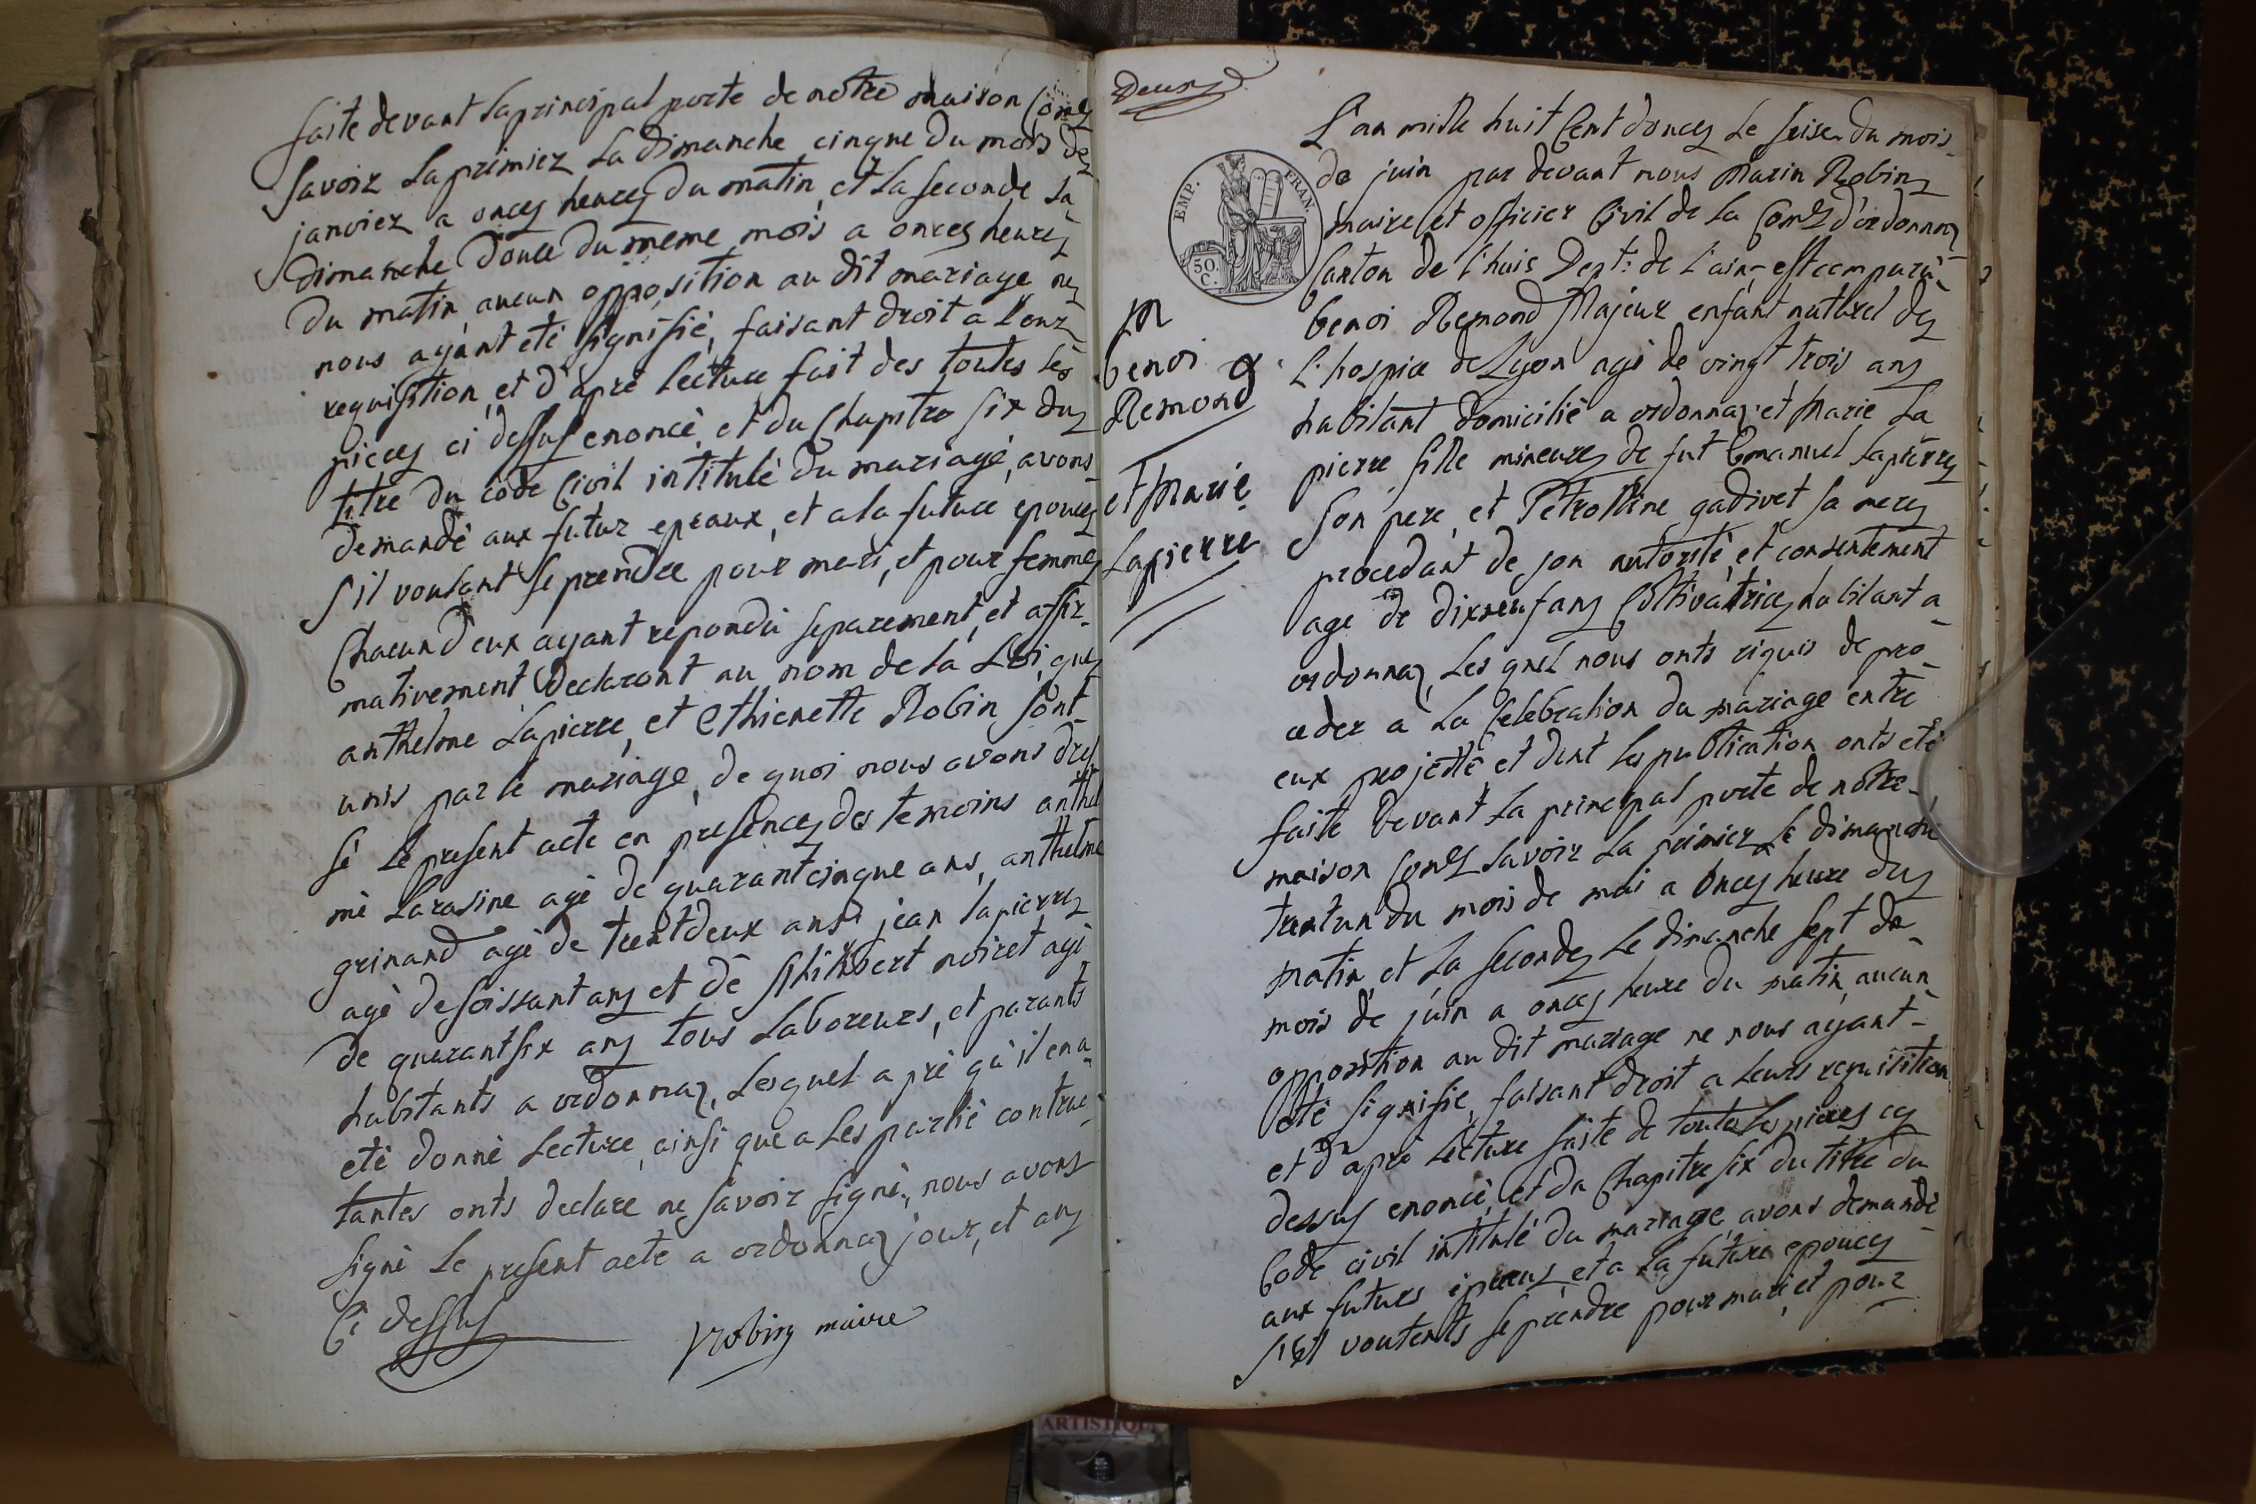 faite devant la principal porte de nôtre maison Com
Savoir la primiez la dimanche cinque du mois de
janviez a onces heures du matin, et la seconde la
dimanche douce du même mois a onces heures
du matin, aucun opposition au dit mariage ne
nous ayant eté signifié, faisant droit a leur
requisition, et d'apré lecture fait des toutes lés
pieces ci dessus enoncé, et du Chapitre six du
titre du côde Civil intitulé du mariage, avons
demandé aux futur epeaux, et a la future epouces
s'il voulant se prendre pour mari, et pour femme
Chacun d'eux ayant repondu separement, et affir-
mativement Declaront au nom de la Loi, que
anthelme Lapierre, et Ethienette Robin sont
unis par le mariage, de quoi nous avons dres
sé le present acte en presences des temoins anthel
me Larasine agé de quarantcinque ans, anthelme
grinand agé de trentdeux ans, jean lapierre
agé de soissant ans et de philibert noiret agé
de quarantsix ans tous Laboreurs, et parants
habitants a ordonnaz, Lesquel a pré qu'il en a
eté donné Lecture, ainsi que a Les partié contrac-
tantes onts declare ne savoir signé, nous avons
signé Le present acte a ordonnaz jour, et ans
Ci dessus
Robin maire
Deux
EMP. FRAN.
50. C.
M
benoi
Remond
et Marie
Lapierre
L'an mille huit Cent douces Le seise du mois
de juin par devant nous Marin Robin
Maire et officier Civil de la Com d'ordonnaz
Canton de l'huis Dept: de L'ain est comparû
benoi Remond Majeur enfant naturel de
L'hospice de Lyon agé de vingt trois ans
habitant domicilié a ordonnaz et Marie La
pierre fille mineures de fut Emanuel Lapierre
son pere, et Petrolline gadivet sa mere
procedant de son autorité, et consentement
age de dixneuf ans Cultivatrices habitant a
ordonnaz, Les quel nous onts riquis de pro-
ceder a La Celebration du mariage entre
eux projetté et dont les publication onts eté
faite devant la principal porte de nôtre
maison Com Savoir La primiez Le dimanche
trentun du mois de mai a Onces heure du
matin et La secondes Le dimanche sept de
mois de juin a onces heure du matin, aucun
opposition au dit mariage ne nous ayant
eté signifié, faisant droit a Leurs requisition
et d'apré Lecture faite de toute les pieces cy
dessus enoncé, et du Chapitre six du titre du
Code civil intitulé du mariage, avons demandé
aux futurs epeaux, et a La future epouces
s'il voutents se prendre pour mari, et pour
ARTISTIQUE